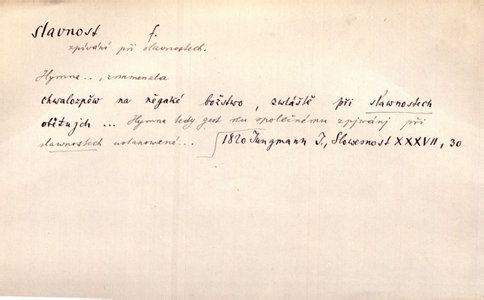 slavnost f.
zpívání při slavnostech.
Hymna..., znamenala
chwalozpěw na něgaké božstwo, zwláště při slawnostech
obětnjch ... Hymna tedy gest ku společnému zpjwánj při
slawnostech ustanowená...
1820 Jungmann J., Slowesnost XXXVII, 30